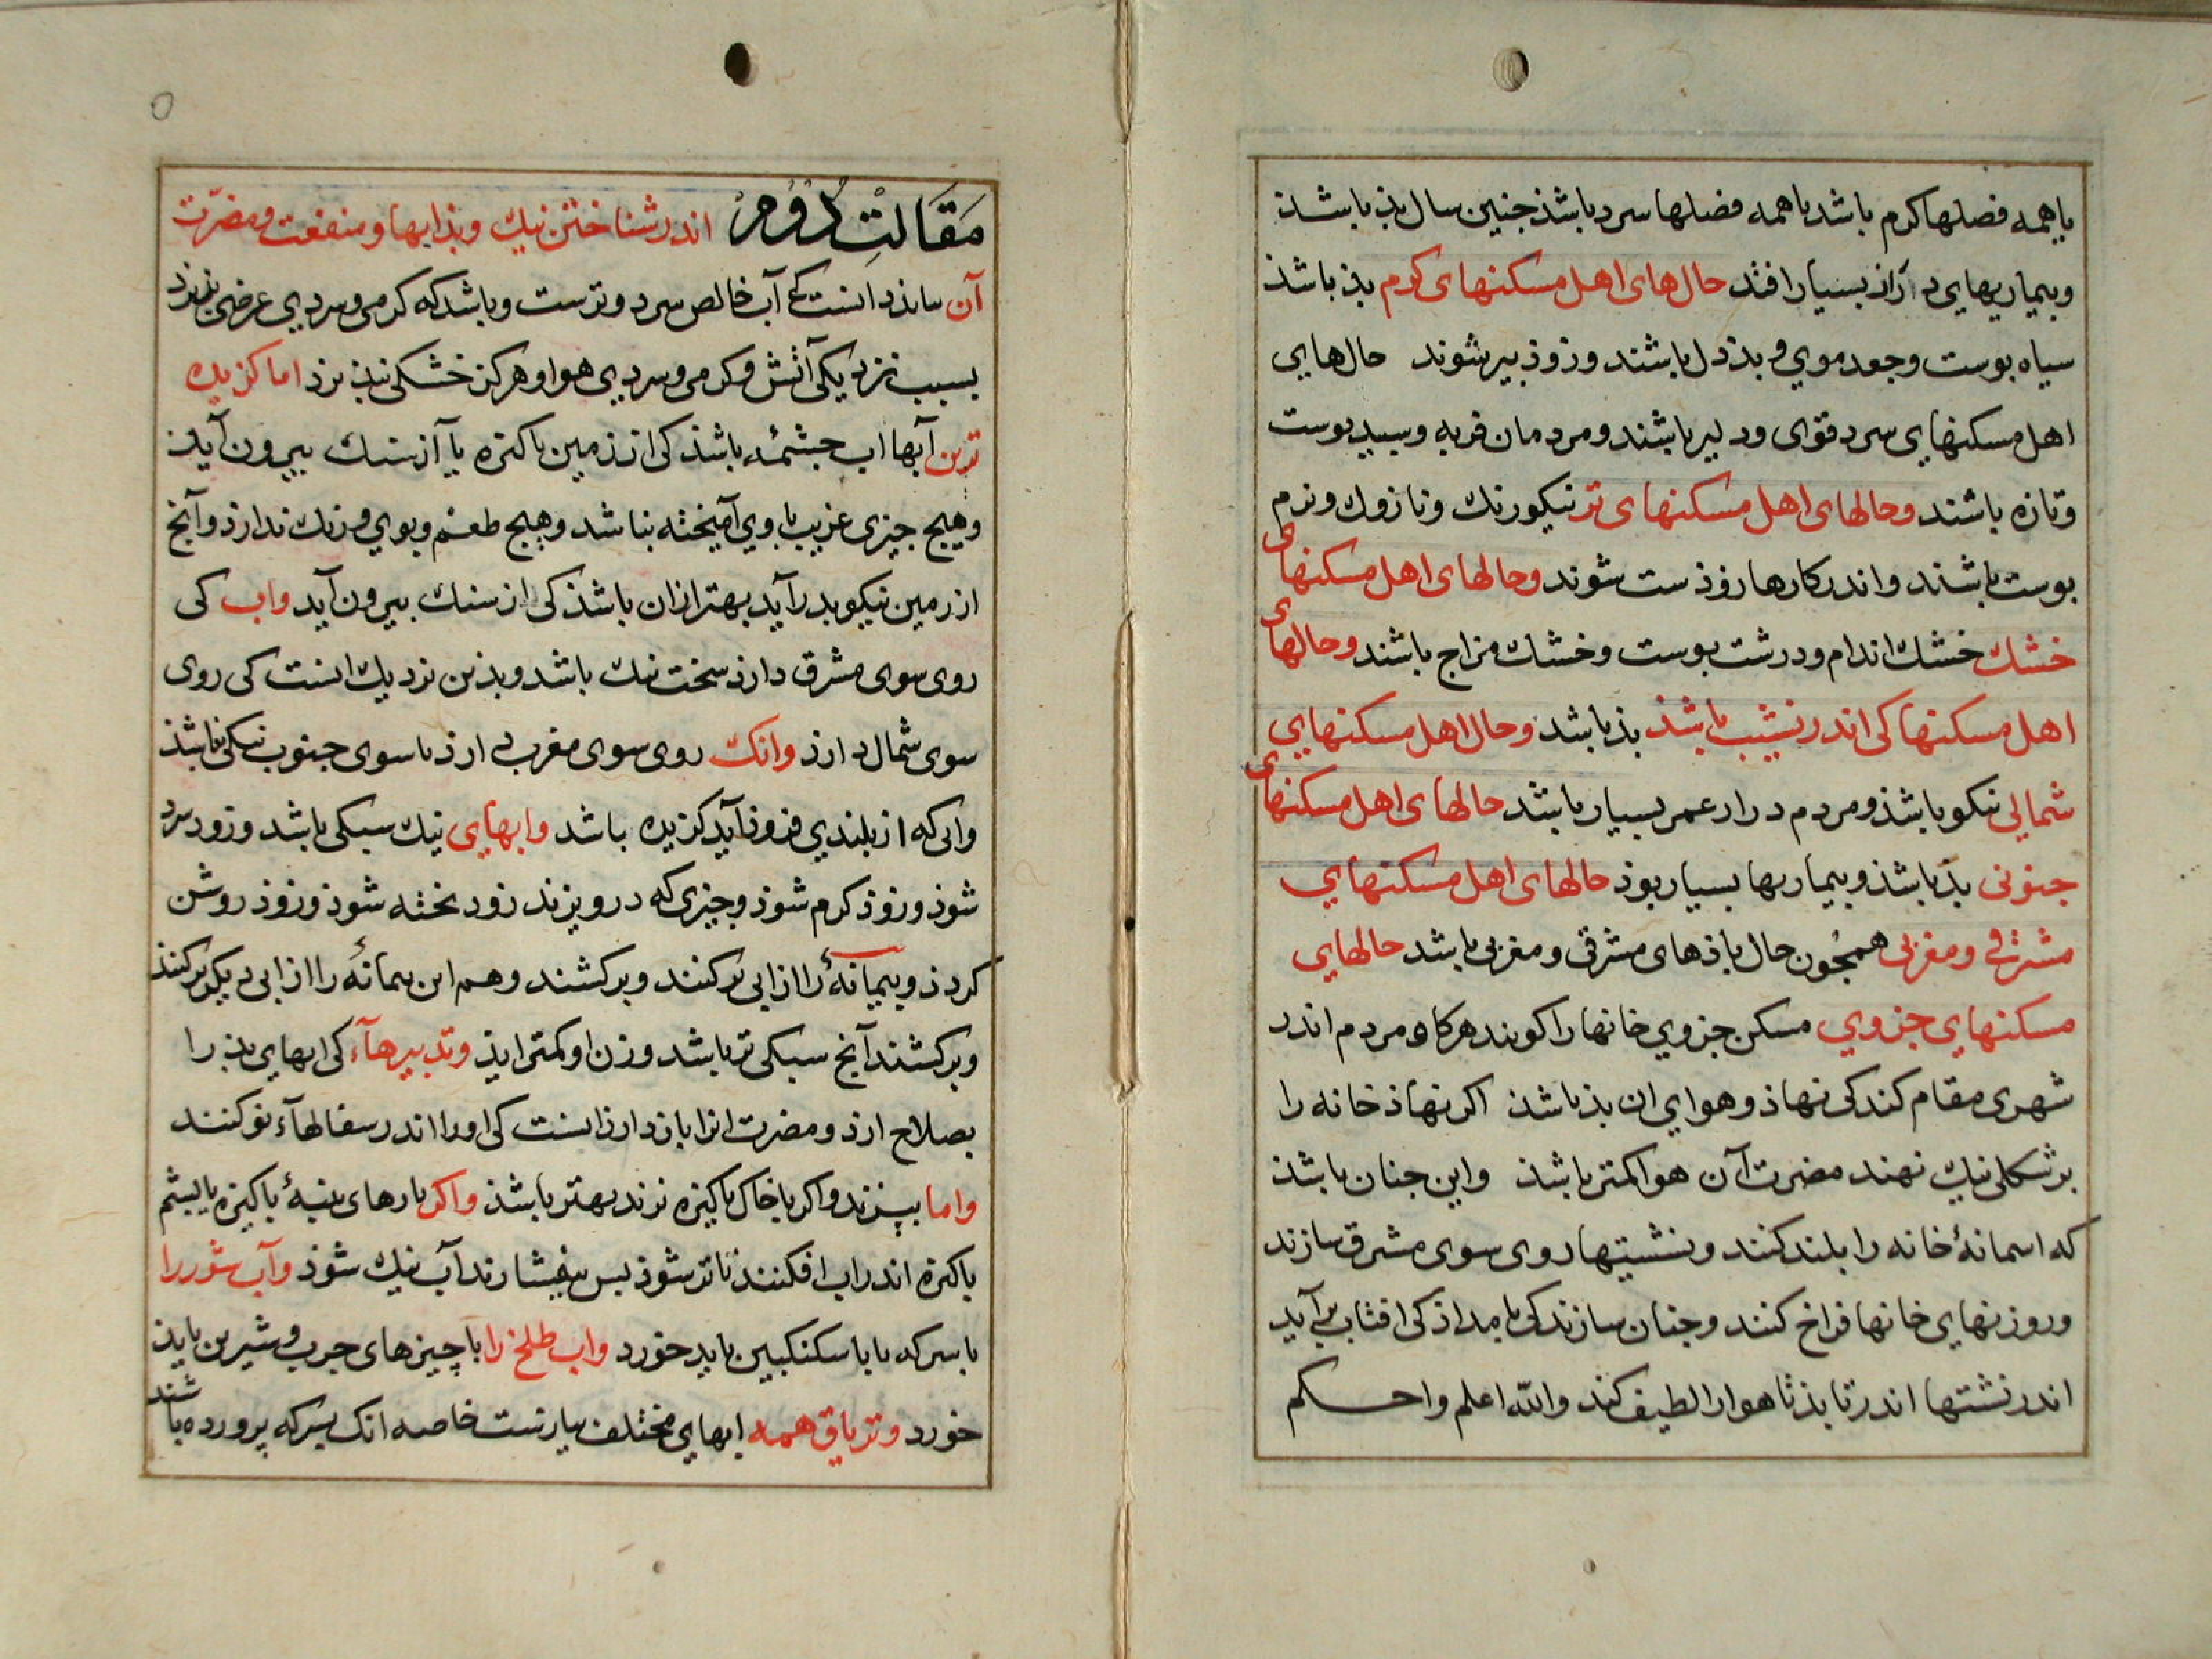 یا همه فصلها کرم باشد یا همه فصلها سرد باشذ جنین سال بذ باشذ
وبیماریهای دراز بسیار افتد حال‌های اهل مسکنهای کرم بذ باشذ
سیاه بوست وجعد موی و بذدل باشند وزوذ بیر شوند حال‌های
اهل مسکنهای سرد قوی ودلیر باشند ومردمان فربه وسبید بوست
وتازه باشند وحالهای اهل مسکنهای تر نیکورنك ونازوك ونرم
بوست باشند واندر کارها زوذ ست شوند وحالهای اهل مسکنهای
خشك خشك اندام ودرشت بوست وخشك مزاج باشند وحالهای
اهل مسکنها کی اندر نشیب باشذ بذ باشد وحال اهل مسکنهای
شمالی نیکو باشذ ومردم دراز عمر بسیار باشد حالهای اهل مسکنهای
جنوبی بذ باشذ وبیماریها بسیار بوذ حالهای اهل مسکنهای
مشرقی ومغربی همجون حال باذهای مشرقی ومغربی باشد حالهای
مسکنهای جزوی مسکن جزوی خانها را کویند هرکاه مردم اندر
شهری مقام کند کی نهاذ وهوای ان بذ باشذ اکر نهاذ خانه را
بر شکلی نیك نهند مضرت آن هوا کمتر باشذ واین جنان باشذ
که اسمانۀ خانه را بلند کنند ونشستها روی سوی مشرق سازند
وروزنهای خانها فراخ کنند وجنان سازند کی بامداذ کی افتاب برآید
اندر نشستها اندر تابذ تا هوا را لطیف کند والله اعلم واحکم
مَقَالَتِ دُوُم اندر شناختن نیك وبذ ابها ومنفعت ومضرّت
آن بباید دانست کی آب خالص سرد وترست وباشد که کرمی وسردی عرضی بذیرد
بسبب نزدیکی آتش و کرمی وسردی هوا وهرکز خشکی نبذیرذ اما کزیده
ترین آبها اب جشمۀ باشذ کی از زمین باکیزه یا از سنك بیرون آیذ
وهیج جیزی غریب با وی آمیخته نباشد وهیج طعم وبوی ورنك ندارذ وآنج
از زمین نیکو بدر آید بهتر از ان باشذ کی از سنك بیرون آید واب کی
روی سوی مشرق دارذ سخت نیك باشد وبذین نزدیك است کی روی
سوی شمال دارذ وانك روی سوی مغرب دارذ یا سوی جنوب نیکی نباشذ
وابی که از بلندی فروذ آید کزیده باشد وابهای نیك سبکی باشد وزود سرد
شوذ وزوذ کرم شوذ وجیزی که درو بزند زود بخته شوذ وزوذ روشن
کردذ وبیمانۀ را از ابی بر کنند وبرکشند وهم این بیمانۀ را از ابی دیکر برکنند
وبرکشند آنج سبکی تر باشد وزن او کمتر ایذ وتدبیرهآء کی ابهای بذ را
بصلاح ارذ ومضرت انرا باز دارذ انست کی اورا اندر سفالهآء نو کنند
واما ببزند واکر با خاک باکیزه بزند بهتر باشذ واکر بارهای بنبۀ باکیزه یا بشم
باکیزه اندر اب افکنند تا تر شوذ بس بیفشارند آب نیك شوذ وآب شور را
با سرکه یا با سکنکبین باید خورد واب طلخ را با چیزهای جرب وشیرین بایذ
خورد وتریاق همه ابهای مختلف بیازست خاصه انک بسرکه پرورده باشند